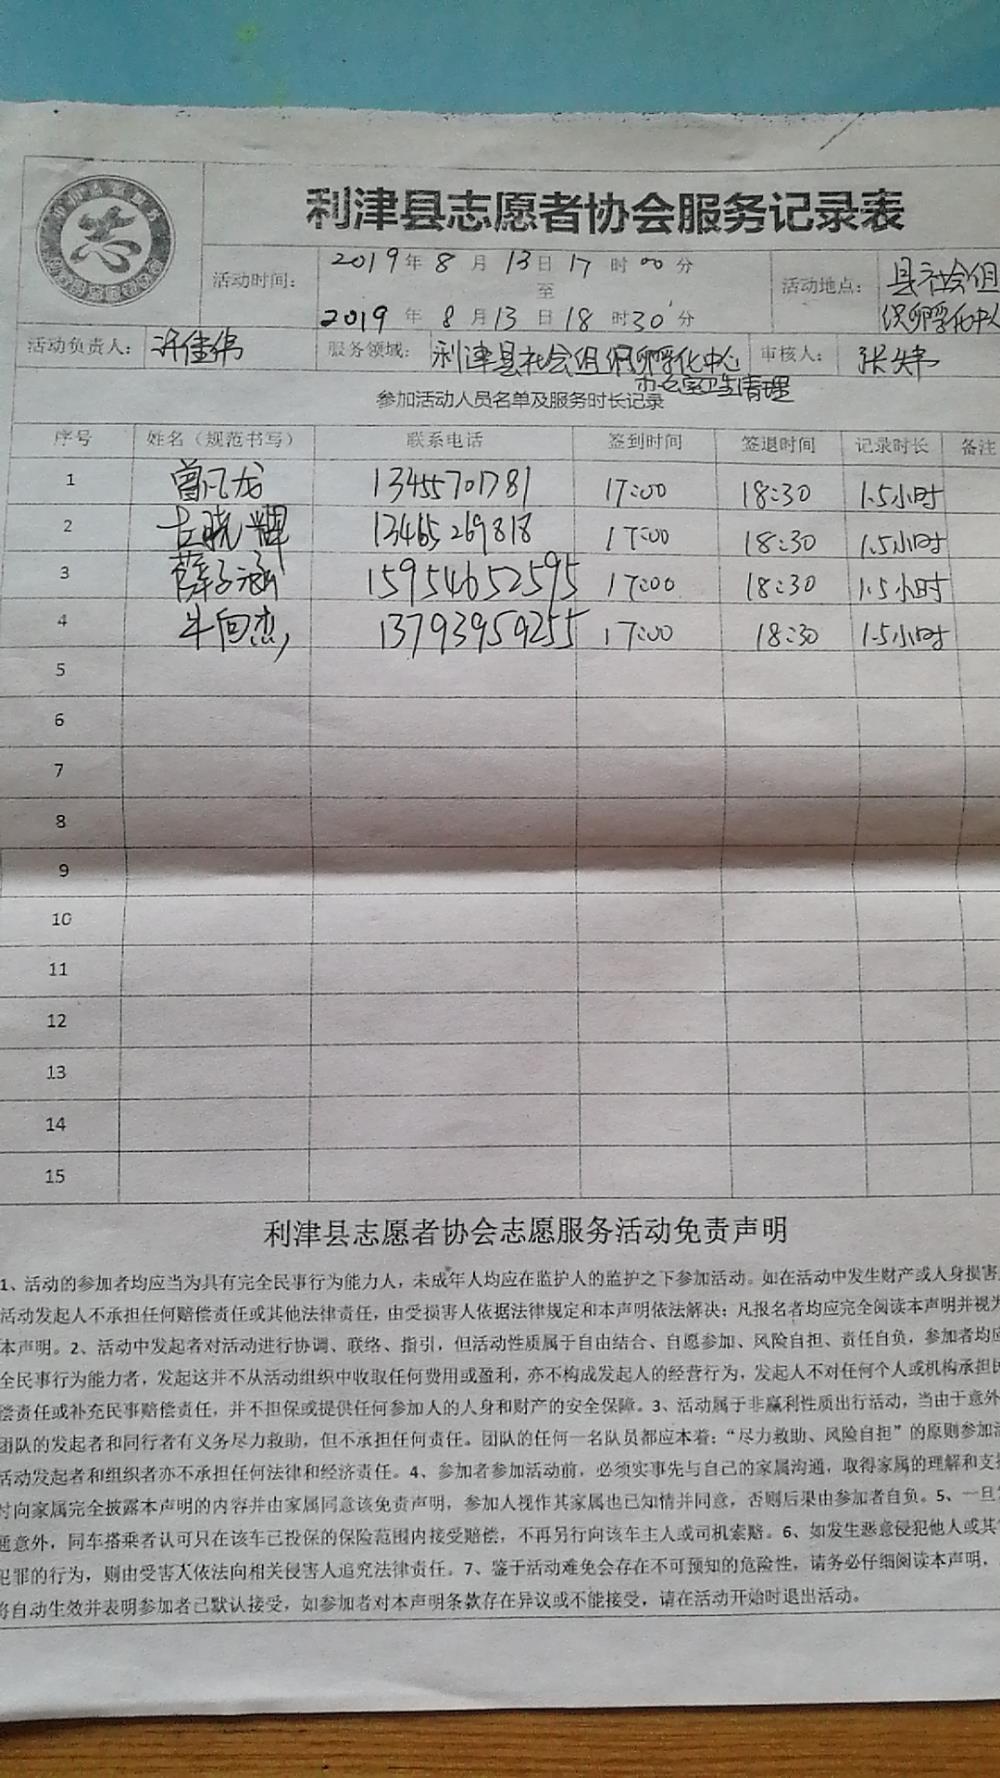 利津县志愿者协会服务记录表
活动时间： 2019年8月13日17时00分
至
2019年8月13日18时30分
活动地点： 县社会组
织孵化中心
活动负责人： 许佳伟 服务领域： 利津县社会组织孵化中心 审核人：
办公室卫生清理
参加活动人员名单及服务时长记录
序号 姓名（规范书写） 联系电话 签到时间 签退时间 记录时长 备注
1 曾凡龙 13455701781 17:00 18:30 1.5小时
2 左晓辉 13465269818 17:00 18:30 1.5小时
3 薛子涵 15954652595 17:00 18:30 1.5小时
4 牛向杰 13793959255 17:00 18:30 1.5小时
5
6
7
8
9
10
11
12
13
14
15
利津县志愿者协会志愿服务活动免责声明
1、活动的参加者均应当为具有完全民事行为能力人，未成年人均应在监护人的监护之下参加活动。如在活动中发生财产或人身损害，
活动发起人不承担任何赔偿责任或其他法律责任，由受损害人依据法律规定和本声明依法解决；凡报名者均应完全阅读本声明并视为
本声明。2、活动中发起者对活动进行协调、联络、指引，但活动性质属于自由结合、自愿参加、风险自担、责任自负，参加者均应
全民事行为能力者，发起这并不从活动组织中收取任何费用或盈利，亦不构成发起人的经营行为，发起人不对任何个人或机构承担民
偿责任或补充民事赔偿责任，并不担保或提供任何参加人的人身和财产的安全保障。3、活动属于非赢利性质出行活动，当由于意外
团队的发起者和同行者有义务尽力救助，但不承担任何责任。团队的任何一名队员都应本着：“尽力救助、风险自担”的原则参加活
活动发起者和组织者亦不承担任何法律和经济责任。4、参加者参加活动前，必须实事先与自己的家属沟通，取得家属的理解和支持
时向家属完全披露本声明的内容并由家属同意该免责声明，参加人视作其家属也已知情并同意，否则后果由参加者自负。5、一旦
通意外，同车搭乘者认可只在该车已投保的保险范围内接受赔偿，不再另行向该车主人或司机索赔。6、如发生恶意侵犯他人或其
犯罪的行为，则由受害人依法向相关侵害人追究法律责任。7、鉴于活动难免会存在不可预知的危险性，请务必仔细阅读本声明，
将自动生效并表明参加者已默认接受，如参加者对本声明条款存在异议或不能接受，请在活动开始时退出活动。